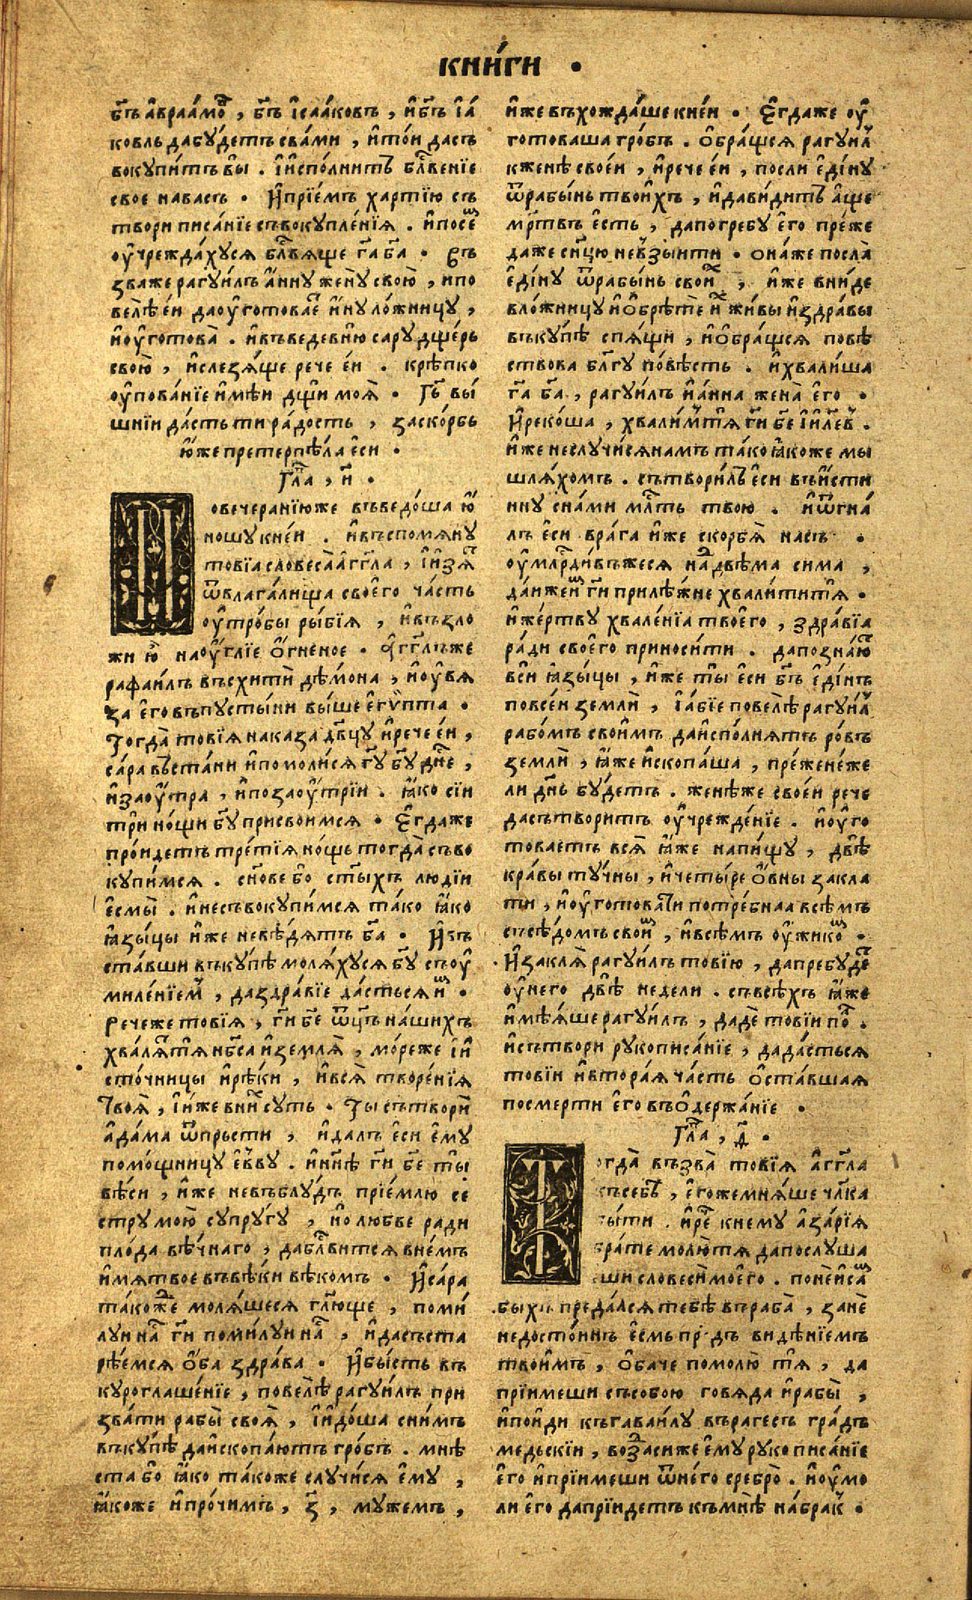 кни́ги ·
бг҃ъ а҆враа́мо , бг҃ъ і҆саа́ковъ , и҆бг҃ъ і҆а́
ковль дабу́детъ сва́ми , и҆то́и да́стъ
вокупи́тъ вы̀ . і҆и҆спо́лнитъ блг҃ве́нїе
свое нава́съ · И҆прїе́мъ харти́ю съ
твори писа́нїе съвокупле́нїя . и҆посе
оу҆чрежда́хуся блг҃вя́ще га҃ ба҃ · Въ
зва́же рагуи́лъ а҆́нну жену̀ свою̀ , и҆по
велѣ̀ е́и даоу҆готовае и҆́ну ло́жницу ,
и҆оу҆гото́ва . и҆въведе́вню са́ру дще́рь
свою̀ , и҆сле́зяще рече е́и . крѣ́пко
оу҆пова́нїе и҆мѣ́и дщ҃и моя̀ · Гь҃ вы́
шнїи да́стъ ти ра́дость , заско́рбь
ю҆́же претерпѣ́ла е҆си ·
Гла҃ , и҃ ·
Повечера́нїюже въведо́ша ю҆̀
ношу кне́и . и҆въспомяну
тові́а словеса̀ а҆́гг҃ла , і҆изя
ѿвлага́лища своего̀ ча́сть
оу҆тро́бы ры́бїя , и҆възло
жи ю҆̀ наоу҆́глїе о҆́гненое · А҆́гг҃лъже
рафаи́лъ въсхитѝ де́мона , и҆оу҆вя
за е҆го въпусты́ни вы́ше е҆гѵ́пта ·
Тогда̀ товїя наказа дв҃цу и҆рече е́и ,
са́ра въста́ни и҆помоли́ся гу҃ бу҃ дн҃е ,
и҆заоу҆́тра , и҆позаоу҆́трїи . ꙗ҆́ко сїи
трѝ но́щи бу҃ присвоимся · Е҆гда́же
про́идетъ тре́тїя но́щь тогда̀ съво
купи́мся . сн҃ове бо ст҃ы́хъ лю́дїи
е҆смы̀ . и҆несъвокупи́мся та́ко ꙗ҆́ко
ꙗ҆зы́цы и҆́же невѣ́дятъ ба҃ · И҆въ
ста́вши въку́пѣ моля́хуся бу҃ съоу҆
миле́нїем , даздра́вїе да́стъся и҆ ·
Рече́же тови́я , ги҃ бе҃ ѻ҆ц҃ъ на́шихъ
хваля́ття нб҃са и҆земля̀ , мо́реже і҆и
сто́чницы и҆рѣ́ки , и҆вся̀ творе́нїя
Твоя̀ , і҆и҆же вни суть · Ты сътвори́
а҆да́ма ѿпрьсти , и҆далъ е҆си е҆му
помо́щницу е҆́вву . и҆нн҃ѣ ги҃ бе҃ ты̀
вѣ́си , и҆́же невъблу́дъ прїе́млю се
стру мою̀ супру́гу , и҆о любве ради
пло́да вѣ́чнаго , дабл҃ви́тся вне́мъ
и҆́мятвое въвѣ́ки вѣко́мъ · И҆са́ра
та́коже моля́щеся гл҃ю́ще , поми́
луи на ги҃ поми́луи на , и҆дасъста
рѣ́емся о҆́ба здра́ва · И҆бы́сть въ
куроглаше́нїе , повелѣ̀ рагуи́лъ при
зва́ти рабы̀ своя̀ , і҆идо́ша сни́мъ
въку́пѣ даи҆скопа́ютъ гро́бъ . мнѣ́
ста бо ꙗ҆́ко та́коже случи́ся е҆му ,
ꙗ҆́коже и҆про́чимъ , з҃ , му́жемъ ,
и҆́же въхожда́ше кне́и · Е҆гда́же оу҆
готоваша гро́бъ . о҆бра́щся рагуил
кженѣ̀ своеи , и҆рече е́и , посли е҆ди́ну
ѿрабы́нь твои́хъ , и҆дави́дитъ а҆́ще
мр҃твъ е҆́сть , дапогребу е҆го пре́же
да́же сн҃цю невзы́ити · она́же посла̀
е҆ди́ну ѿрабы́нь свои , и҆́же вни́де
вло́жницу и҆о҆брѣ́те и҆ жи́вы и҆здра́вы
въку́пѣ спя́щи , и҆о҆бра́щся повѣ
ствова блг҃у по́вѣсть . и҆хвали́ша
га҃ ба҃ , рагуи́лъ и҆а҆́нна жена̀ е҆го ·
И҆реко́ша , хвали́мтя ги҃ бе҃ і҆ил҃ев .
и҆́же неслучи́сянамъ та́ко ꙗ҆́коже мы
шля́хомъ . сътвори́лъ е҆си въи҆́сти
нну сна́ми мл҃ть твою . и҆ѿгна́
лъ е҆си вра́га и҆́же скорбя̀ насъ ·
оу҆млр҃ди́въжеся на двѣма сима ,
да́иже ги҃ прилѣ́жне хвали́титя ·
и҆же́ртву хвале́нїя твоего̀ , здра́вїа
ра́ди своего̀ приноси́ти . дапозна́ю
вси ꙗ҆зы́цы , и҆́же ты̀ еси бг҃ъ е҆ди́нъ
повсе́и землѝ , і҆а҆́бїе повелѣ̀ рагуил
рабо́мъ свои́мъ даи҆спо́лнятъ ро́въ
землѝ , ꙗ҆́же и҆скопа́ша , пре́женеже
ли дн҃ь бу́детъ . женѣ́же свое́и рече
дасътвори́тъ оу҆чрежде́нїе . и҆оу҆го
това́етъ вся̀ ꙗ҆́же напи́щу , двѣ̀
кра́вы ту́чны , и҆четы́ре о҆́вны закла
ти , и҆оу҆готова́ти потре́бнаа всѣ́мъ
съсѣ́домъ свои , и҆всѣ́мъ оу҆́жико ·
И҆закля̀ рагуи́лъ тови́ю , дапребуде
оу҆него двѣ̀ недели . съвсѣ́хъ ꙗ҆́же
и҆мѣ́яше рагуи́лъ , дадѐ тови́и по .
и҆сътвори рукописа́нїе , дада́стъся
тови́и и҆втора́я ча́сть о҆ста́вшая
посме́рти е҆го въо҆держа́нїе ·
Гла҃ , д҃ ·
Тогда̀ възва̀ тови́я а҆́гг҃ла
късебѣ , е҆го́жемня́ше чл҃ка
бы́ти . и҆ре кнему а҆за́рїя
бра́те молю́тя дапослуша
еши словесѝ моего̀ . поне́иса
быхъ преда́лся тебѣ̀ враба̀ , занѐ
недосто́инъ е҆смь пр дъ видѣ́нїемъ
твои́мъ , о҆ба́че помолю́ тя , да
прїимеши съсобою говя́да и҆рабы̀ ,
и҆поиди къгаваи́лу въра́гесъ гра́дъ
медьскїи , возда́сиже е҆му рукописа́нїе
е҆го и҆прїимеши ѿне́го сребро̀ . и҆оу҆мо
ли е҆го дапрїидетъ къмнѣ̀ на́брак ·